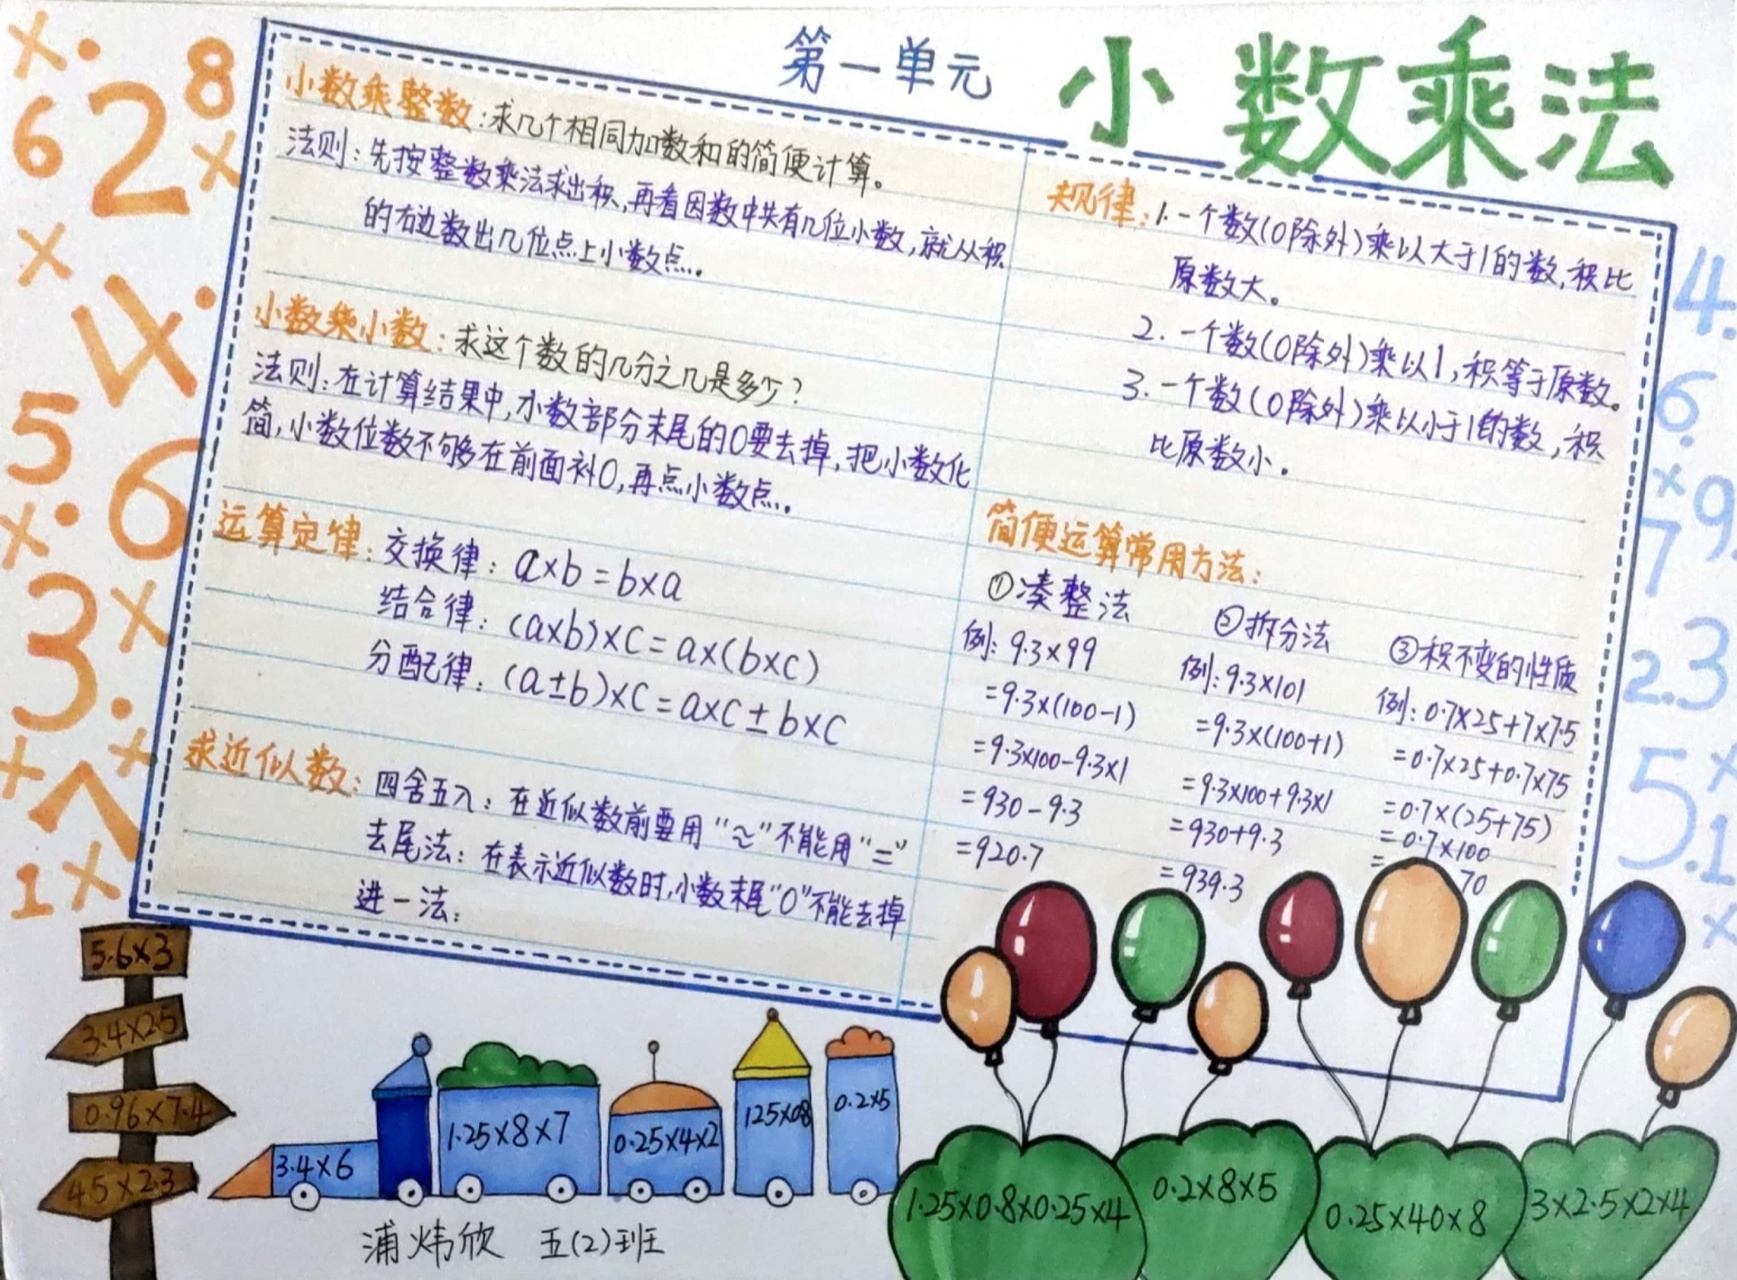 第一单元 小数乘法
小数乘整数:求几个相同加数和的简便计算。
法则:先按整数乘法求出积,再看因数中共有几位小数,就从积
的右边数出几位点上小数点。
小数乘小数:求这个数的几分之几是多少?
法则:在计算结果中,小数部分末尾的0要去掉,把小数化
简,小数位数不够在前面补0,再点小数点。
运算定律:交换律:a×b=b×a
结合律:(a×b)×c=a×(b×c)
分配律:(a±b)×c=a×c±b×c
求近似数:四舍五入:在近似数前要用“≈”不能用“=”
去尾法:在表示近似数时,小数末尾“0”不能去掉
进一法:
规律:1.一个数(0除外)乘以大于1的数,积比
原数大。
2.一个数(0除外)乘以1,积等于原数。
3.一个数(0除外)乘以小于1的数,积
比原数小.
简便运算常用方法:
①凑整法
例:9.3×99
=9.3×(100-1)
=9.3×100-9.3×1
=930-9.3
=920.7
②拆分法
例:9.3×101
=9.3×(100+1)
=9.3×100+9.3×1
=930+9.3
=939.3
③积不变的性质
例:0.7×25+7×7.5
=0.7×25+0.7×75
=0.7×(25+75)
=0.7×100
=70
8
6 2
4.
5
6
3.
7
1
4.
6.
9.
7
2.3
5.1
5.6×3
3.4×25
0.96×7.4
45×2.3
3.4×6
1.25×8×7
0.25×4×2
125×08
0.2×5
1.25×0.8×0.25×4
0.2×8×5
0.25×40×8
3×2.5×2×4
浦炜欣 五(2)班